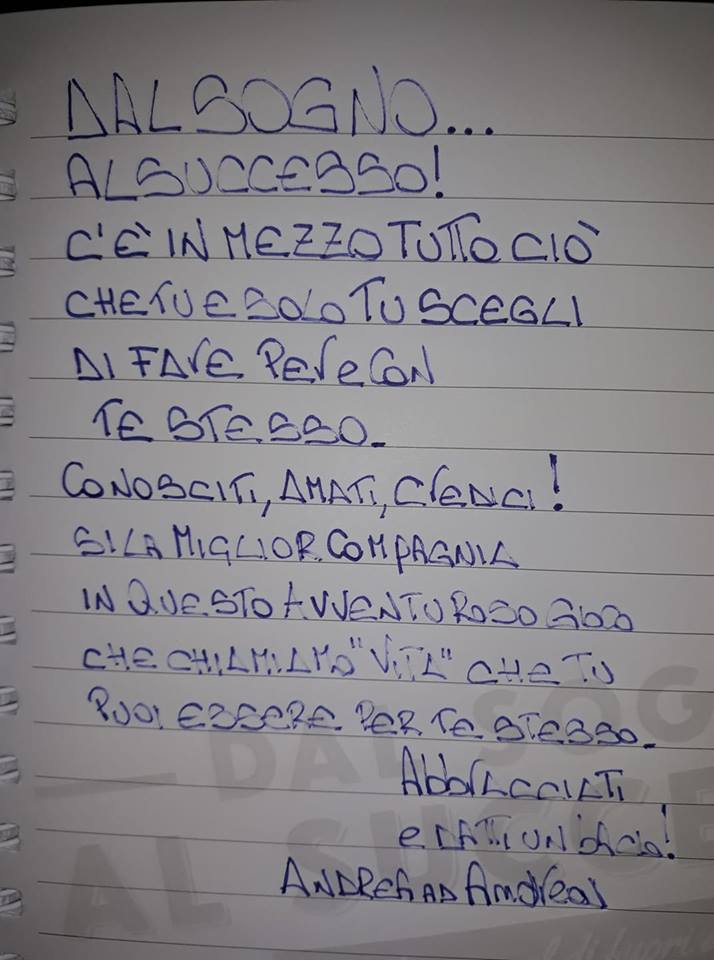 DAL SOGNO...
AL SUCCESSO!
C'È IN MEZZO TUTTO CIÒ
CHE TU E SOLO TU SCEGLI
DI FARE PER e CON
TE STESSO.
CONOSCITI, AMATI, CREDICI!
SII LA MIGLIOR COMPAGNIA
IN QUESTO AVVENTUROSO GIOCO
CHE CHIAMIAMO "VITA" CHE TU
PUOI ESSERE PER TE STESSO.
ABBRACCIATI
e DATTI UN bACIO!
ANDREA AD Andreas
DAL SOG
AL SUCCE